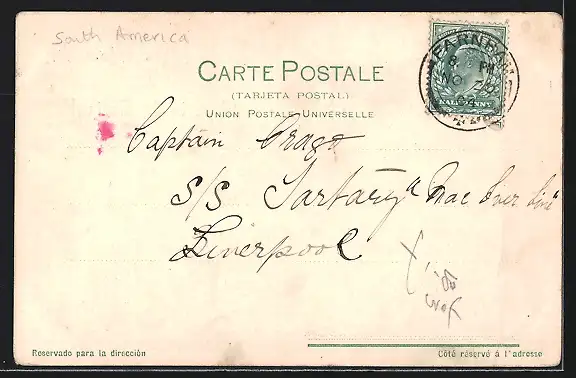 South America
CARTE POSTALE
(TARJETA POSTAL)
UNION POSTALE UNIVERSELLE
FARNBORO
NO
HALFPENNY
Captain Crago
S/S "Tartary" Mac Iver Line
Liverpool
Reservado para la dirección
Côté réservé á l'adresse